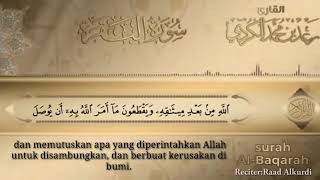 القارئ
رعد محمد الكردي
سورة البقرة
اللَّهِ مِنْ بَعْدِ مِيثَاقِهِ وَيَقْطَعُونَ مَا أَمَرَ اللَّهُ بِهِ أَنْ يُوصَلَ
dan memutuskan apa yang diperintahkan Allah
untuk disambungkan, dan berbuat kerusakan di
bumi.
surah
Al-Baqarah
Reciter:Raad Alkurdi